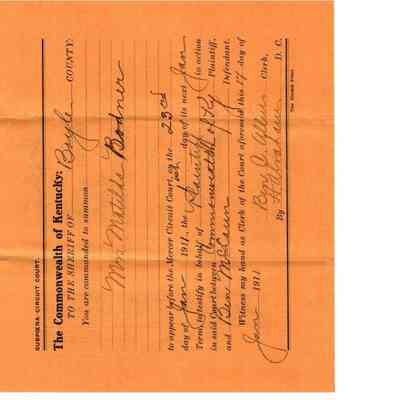 SUBPOENA CIRCUIT COURT.
The Commonwealth of Kentucky:
TO THE SHERIFF OF Boyle COUNTY:
You are commanded to summon
Mrs. Matilda Bodner
to appear before the Mercer Circuit Court, on the 23rd
day of Jan 1911, the day of its next Jan
Term, to testify in behalf of Plaintiff in action
in said Court between Commonwealth of Ky Plaintiff,
and Ben McCaun Defendant.
Witness my hand as Clerk of the Court aforesaid this 17 day of
Jan 1911 Ben Allen Clerk,
By D. C.